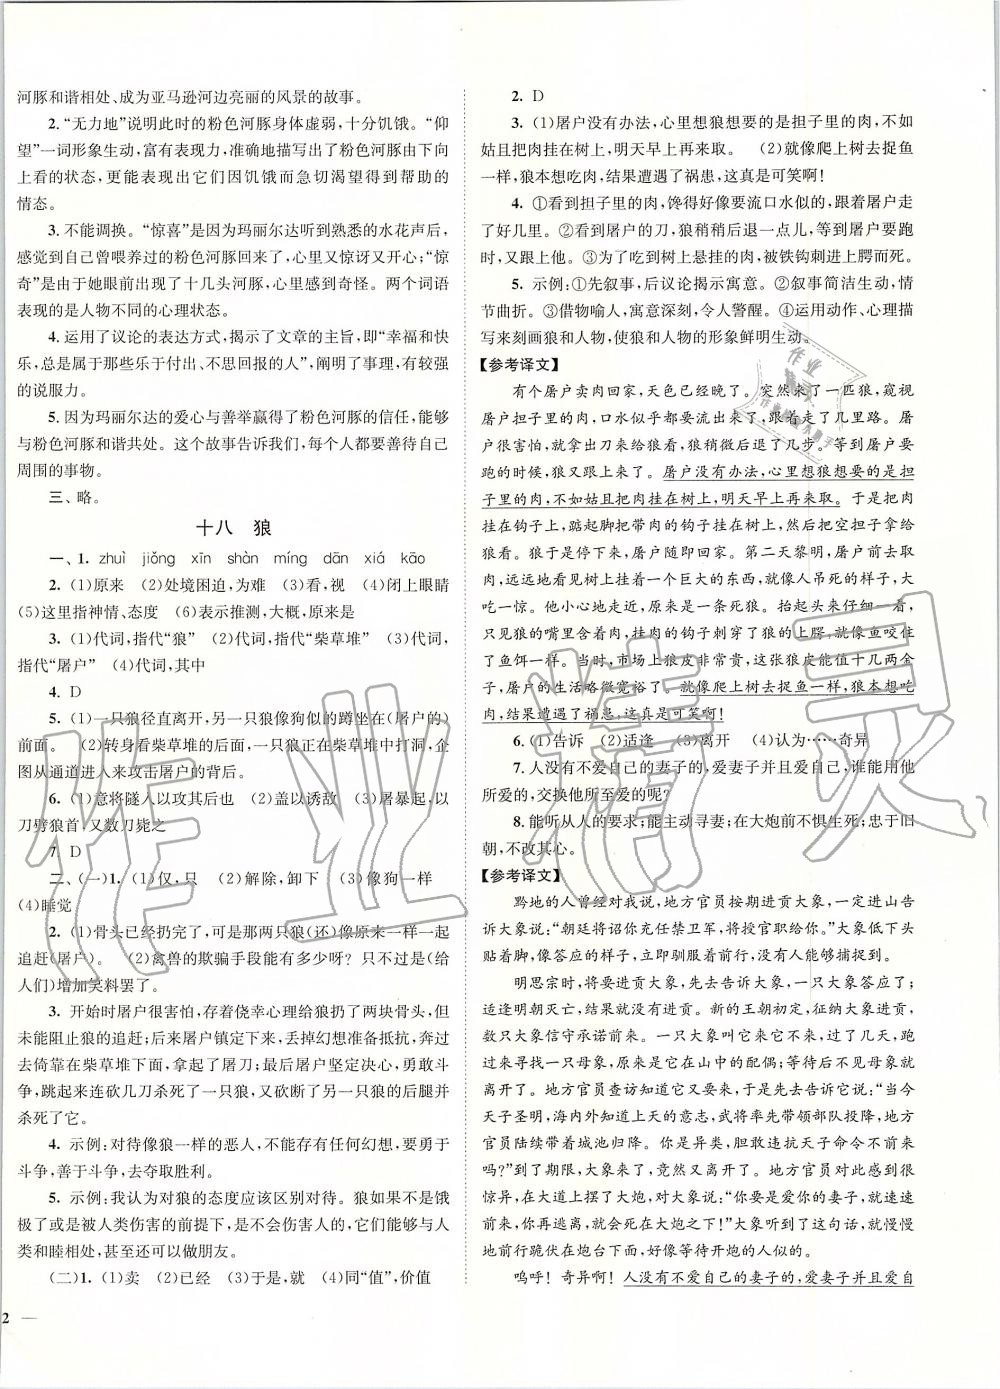 河豚和谐相处、成为亚马逊河边亮丽的风景的故事。
2. “无力地”说明此时的粉色河豚身体虚弱，十分饥饿。“仰
望”一词形象生动，富有表现力，准确地描写出了粉色河豚由下向
上看的状态，更能表现出它们因饥饿而急切渴望得到帮助的
情态。
3. 不能调换。“惊喜”是因为玛丽尔达听到熟悉的水花声后，
感觉到自己曾喂养过的粉色河豚回来了，心里又惊讶又开心；“惊
奇”是由于她眼前出现了十几头河豚，心里感到奇怪。两个词语
表现的是人物不同的心理状态。
4. 运用了议论的表达方式，揭示了文章的主旨，即“幸福和快
乐，总是属于那些乐于付出、不思回报的人”，阐明了事理，有较强
的说服力。
5. 因为玛丽尔达的爱心与善举赢得了粉色河豚的信任，能够
与粉色河豚和谐共处。这个故事告诉我们，每个人都要善待自己
周围的事物。
三、略。
十八 狼
一、1. zhuì jiǒng xīn shàn míng dān xiá kāo
2. (1)原来 (2)处境困迫，为难 (3)看，视 (4)闭上眼睛
(5)这里指神情、态度 (6)表示推测，大概，原来是
3. (1)代词，指代“狼” (2)代词，指代“柴草堆” (3)代词，
指代“屠户” (4)代词，其中
4. D
5. (1)一只狼径直离开，另一只狼像狗似的蹲坐在(屠户的)
前面。 (2)转身看柴草堆的后面，一只狼正在柴草堆中打洞，企
图从通道进入来攻击屠户的背后。
6. (1)意将隧入以攻其后也 (2)盖以诱敌 (3)屠暴起，以
刀劈狼首，又数刀毙之
7. D
二、(一)1. (1)仅，只 (2)解除，卸下 (3)像狗一样
(4)睡觉
2. (1)骨头已经扔完了，可是那两只狼(还)像原来一样一起
追赶(屠户)。 (2)禽兽的欺骗手段能有多少呀？只不过是(给
人们)增加笑料罢了。
3. 开始时屠户很害怕，存着侥幸心理给狼扔了两块骨头，但
未能阻止狼的追赶；后来屠户镇定下来，丢掉幻想准备抵抗，奔过
去倚靠在柴草堆下面，拿起了屠刀；最后屠户坚定决心，勇敢斗
争，跳起来连砍几刀杀死了一只狼，又砍断了另一只狼的后腿并
杀死了它。
4. 示例：对待像狼一样的恶人，不能存有任何幻想，要勇于
斗争，善于斗争，去夺取胜利。
5. 示例：我认为对狼的态度应该区别对待。狼如果不是饿
极了或是被人类伤害的前提下，是不会伤害人的，它们能够与人
类和睦相处，甚至还可以做朋友。
(二)1. (1)卖 (2)已经 (3)于是，就 (4)同“值”，价值
2
2. D
3. (1)屠户没有办法，心里想狼想要的是担子里的肉，不如
姑且把肉挂在树上，明天早上再来取。 (2)就像爬上树去捉鱼
一样，狼本想吃肉，结果遭遇了祸患，这真是可笑啊！
4. ①看到担子里的肉，馋得好像要流口水似的，跟着屠户走
了好几里。②看到屠户的刀，狼稍稍后退一点儿，等屠户跑时，
又跟上来。③为了吃到树上悬挂的肉，被铁钩刺进上腭而死。
5. 示例：①先叙事，后议论揭示寓意。②叙事简洁生动，情
节曲折。③借物喻人，寓意深刻，令人警醒。④运用动作、心理描
写来刻画狼和人物，使狼和人物的形象鲜明生动。
【参考译文】
有个屠户卖肉回家，天色已经晚了。突然来了一匹狼，窥视
屠户担子里的肉，口水似乎都要流出来了，尾随着走了几里路。屠
户很害怕，就拿出刀来给狼看，狼稍微后退了几步。等到屠户
跑的时候，狼又跟上来。屠户没有办法，心里想狼想要的是担
子里的肉，不如姑且把肉挂在树上，明天早上再来取。于是把肉
挂在钩子上，踮起脚把带肉的钩子挂在树上，然后把空担子拿给
狼看。狼于是停下来，屠户随即回家。第二天黎明，屠户前去取
肉，远远地看见树上挂着一个巨大的东西，就像人吊死的样子，大
吃一惊。他小心地走过去，原来是一条死狼。抬起头来仔细一看，
只见狼的嘴里含着肉，挂肉的钩子刺穿了狼的上腭，就像鱼咬住
了鱼饵一样。当时，市场上狼皮非常贵，这张狼皮能值十几两金
子，屠户的生活略微宽裕了。就像爬上树去捉鱼一样，狼本想吃
肉，结果遭遇了祸患，这真是可笑啊！
6. (1)告诉 (2)适逢 (3)离开 (4)认为……奇异
7. 人没有不爱自己的妻子的，爱妻子并且爱自己，谁能用他
所爱的，交换他所至爱的呢？
8. 能听从人的要求；能主动寻妻；在大炮前不惧生死；忠于旧
朝，不改其心。
【参考译文】
黔地的人曾经对我说，地方官员按期进贡大象，一定进山告
诉大象说：“朝廷将诏你充任禁卫军，将授官职给你。”大象低下头
贴着脚，像答应的样子，立即驯服着前行，没有人能够捕捉到。
明思宗时，将要进贡大象，先去告诉大象，大象已经答应了；
适逢明朝灭亡，没有实现进贡。新的王朝初定，征纳大象进贡，
数只大象信守承诺前来。一只大象叫它来它不来，过了几天，大象
跑过来去找一只母象，原来是它在山中的配偶；等待后不见母象就
离开了。地方官员查访知道了大象的意思，于是去告诉它说：“当今
天子圣明，海内外知道上天的意志，武将率先带领部队投降，地方
官员陆续带着城池归降。你是异类，胆敢抗天子命令而不前来
吗？”到了期限，大象来了，竟然又离开了。地方官员认为大象很
惊异，在大象面前摆了大炮，对大象说：“你要是爱你的妻子，就速速
前来，你再逃离，就会死在大炮之下！”大象听了这句话，就慢慢
地前行跪伏在炮台下面，好像等待开炮的人似的。
呜呼！奇异啊！人没有不爱自己的妻子的，爱妻子并且爱自